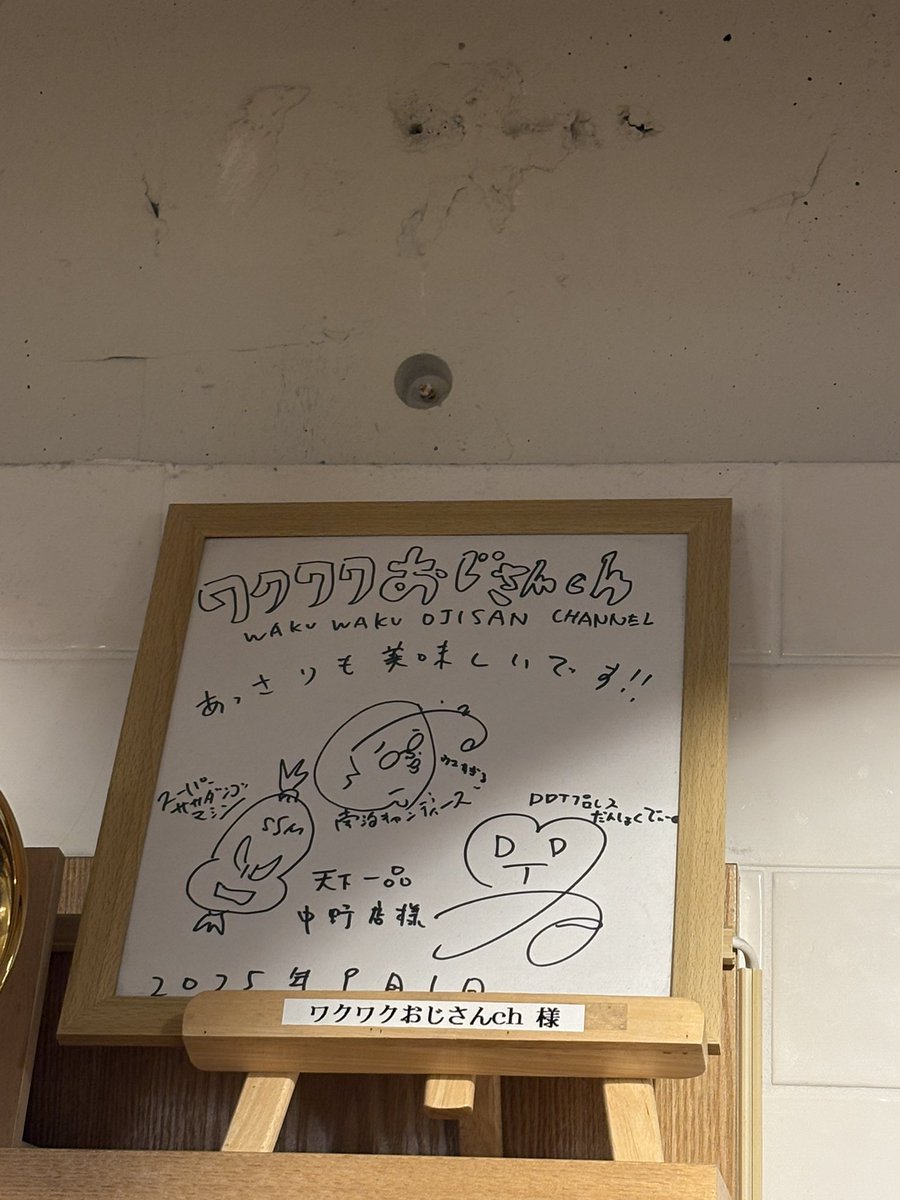 ワクワクおじさんch
WAKU WAKU OJISAN CHANNEL
あっさりも美味しいです!!
スーパー
ササダンゴ
マシン
SSM
南海キャンディーズ
DDTプロレス
だんしょくでぃーの
D D
T
天下一品
中野店様
2025年9月1日
ワクワクおじさんch 様